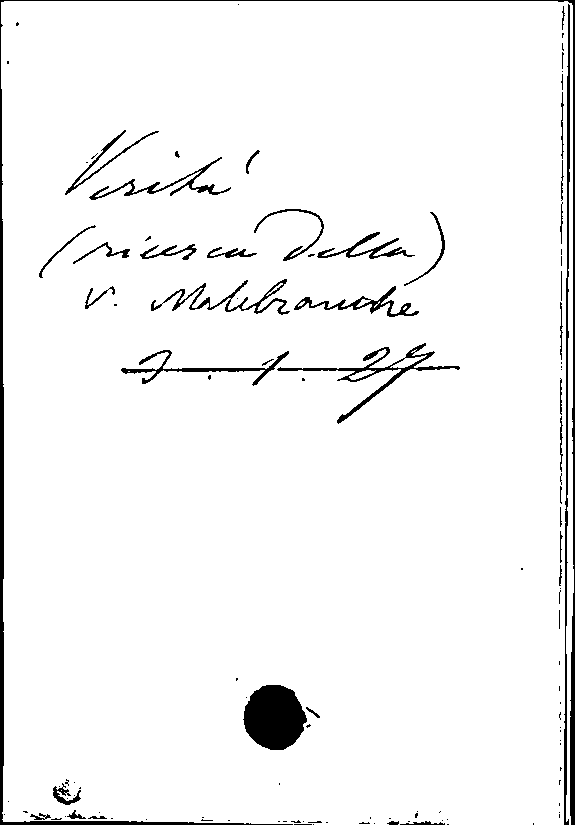 Verità
(ricerca della)
v. Malebranche
3. 1. 27